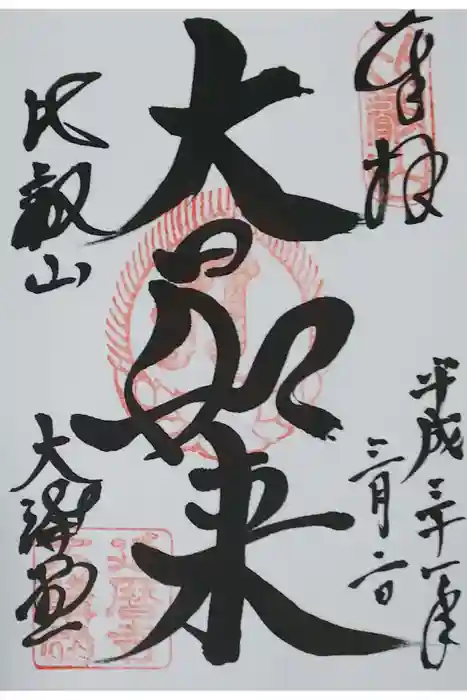 奉拝
平成三十一年
三月二日
大日如来
比叡山
大講堂